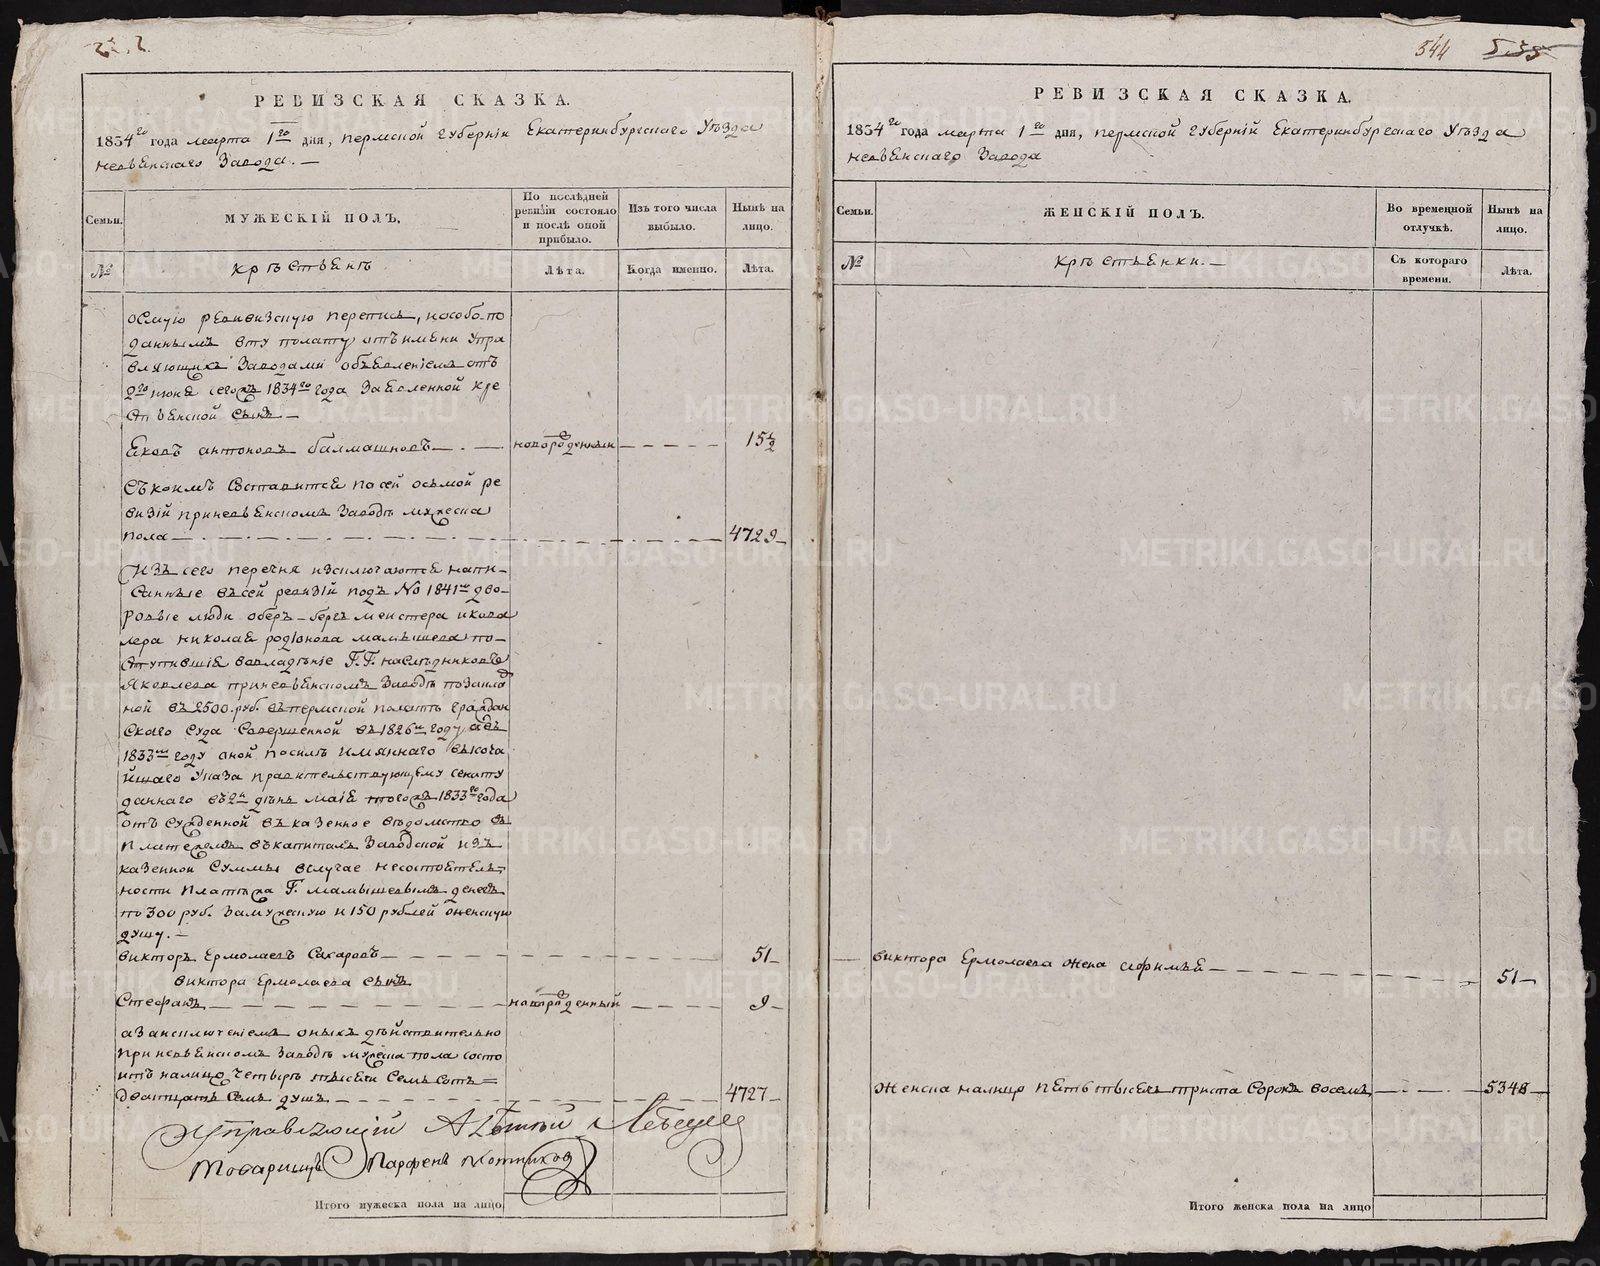 544 535
РЕВИЗСКАЯ СКАЗКА.
1834го года марта 1го дня, Пермской губернiи Екатеринбургскаго Уѣзда
Невьянскаго Завода. —
Семьи.
МУЖЕСКIЙ ПОЛЪ,
По послѣдней ревизiи состояло и послѣ оной прибыло.
Изъ того числа выбыло.
Нынѣ на лицо.
№
крѣстьянѣ
Лѣта.
Когда именно.
Лѣта.
осмую ревизскую перепись, и особо по
даннымъ въ ту полату отъ имени Упра
вляющихъ Заводами объявленiемъ отъ
2го июня сегожъ 1834го года Заявленной кре
стьянской сынъ —
Яковъ антоновъ балмашновъ — новорожденный — 15 1/2
Съ коимъ Составится по сей осьмой ре
визiй при невьянскомъ Заводѣ мужеска
пола — 4729 —
Изъ сего перечня изключаются напи-
Санные въ сей ревизiй подъ № 1841мъ дво-
ровые люди обер-берг меистера и кава
лера николая родiонова мамышева по-
ступившiе во владѣнiе Г.Г. наслѣдниковъ
Яковлева при невьянскомъ Заводѣ по заклад
ной въ 2500 руб. въ пермской полатѣ граждан
скаго Суда Совершенной въ 1826мъ году, а въ
1833мъ году оной по силѣ имяннаго высоча
йшаго Указа правительствующему сенату
даннаго въ 2й день маiя тогожъ 1833го года
отъ сужденной въ казенное вѣдомство съ
платежемъ въ капиталъ Заводской изъ
казенной Суммы вслучае несостоятель-
ности платежа Г. мамышевымъ денегъ
по 300 руб. за мужескую и 150 рублей женскую
душу. —
викторъ Ермолаевъ Сахаровъ — 51 —
виктора Ермолаева сынъ
Стефанъ — новорожденный — 9 —
а за исключенiемъ оныхъ дѣйствительно
при невьянскомъ Заводѣ мужеска пола состо
итъ налицо четырѣ тысячи семь сотъ =
двадцать семь душъ. — 4727 —
Управляющiй
Товарищъ Парфенъ Котников
Итого мужеска пола на лицо
РЕВИЗСКАЯ СКАЗКА.
1834го года марта 1го дня, Пермской губернiй Екатеринбургскаго Уѣзда
невьянскаго Завода
Семьи.
ЖЕНСКIЙ ПОЛЪ.
Во временной отлучкѣ.
Нынѣ на лицо.
№
крѣстьянки. —
Съ котораго времени.
Лѣта.
виктора Ермолаева жена афимья — 51 —
женска налицо пять тысячь триста Сорокъ восемь — 5348 —
Итого женска пола на лицо
METRIKI.GASO-URAL.RU